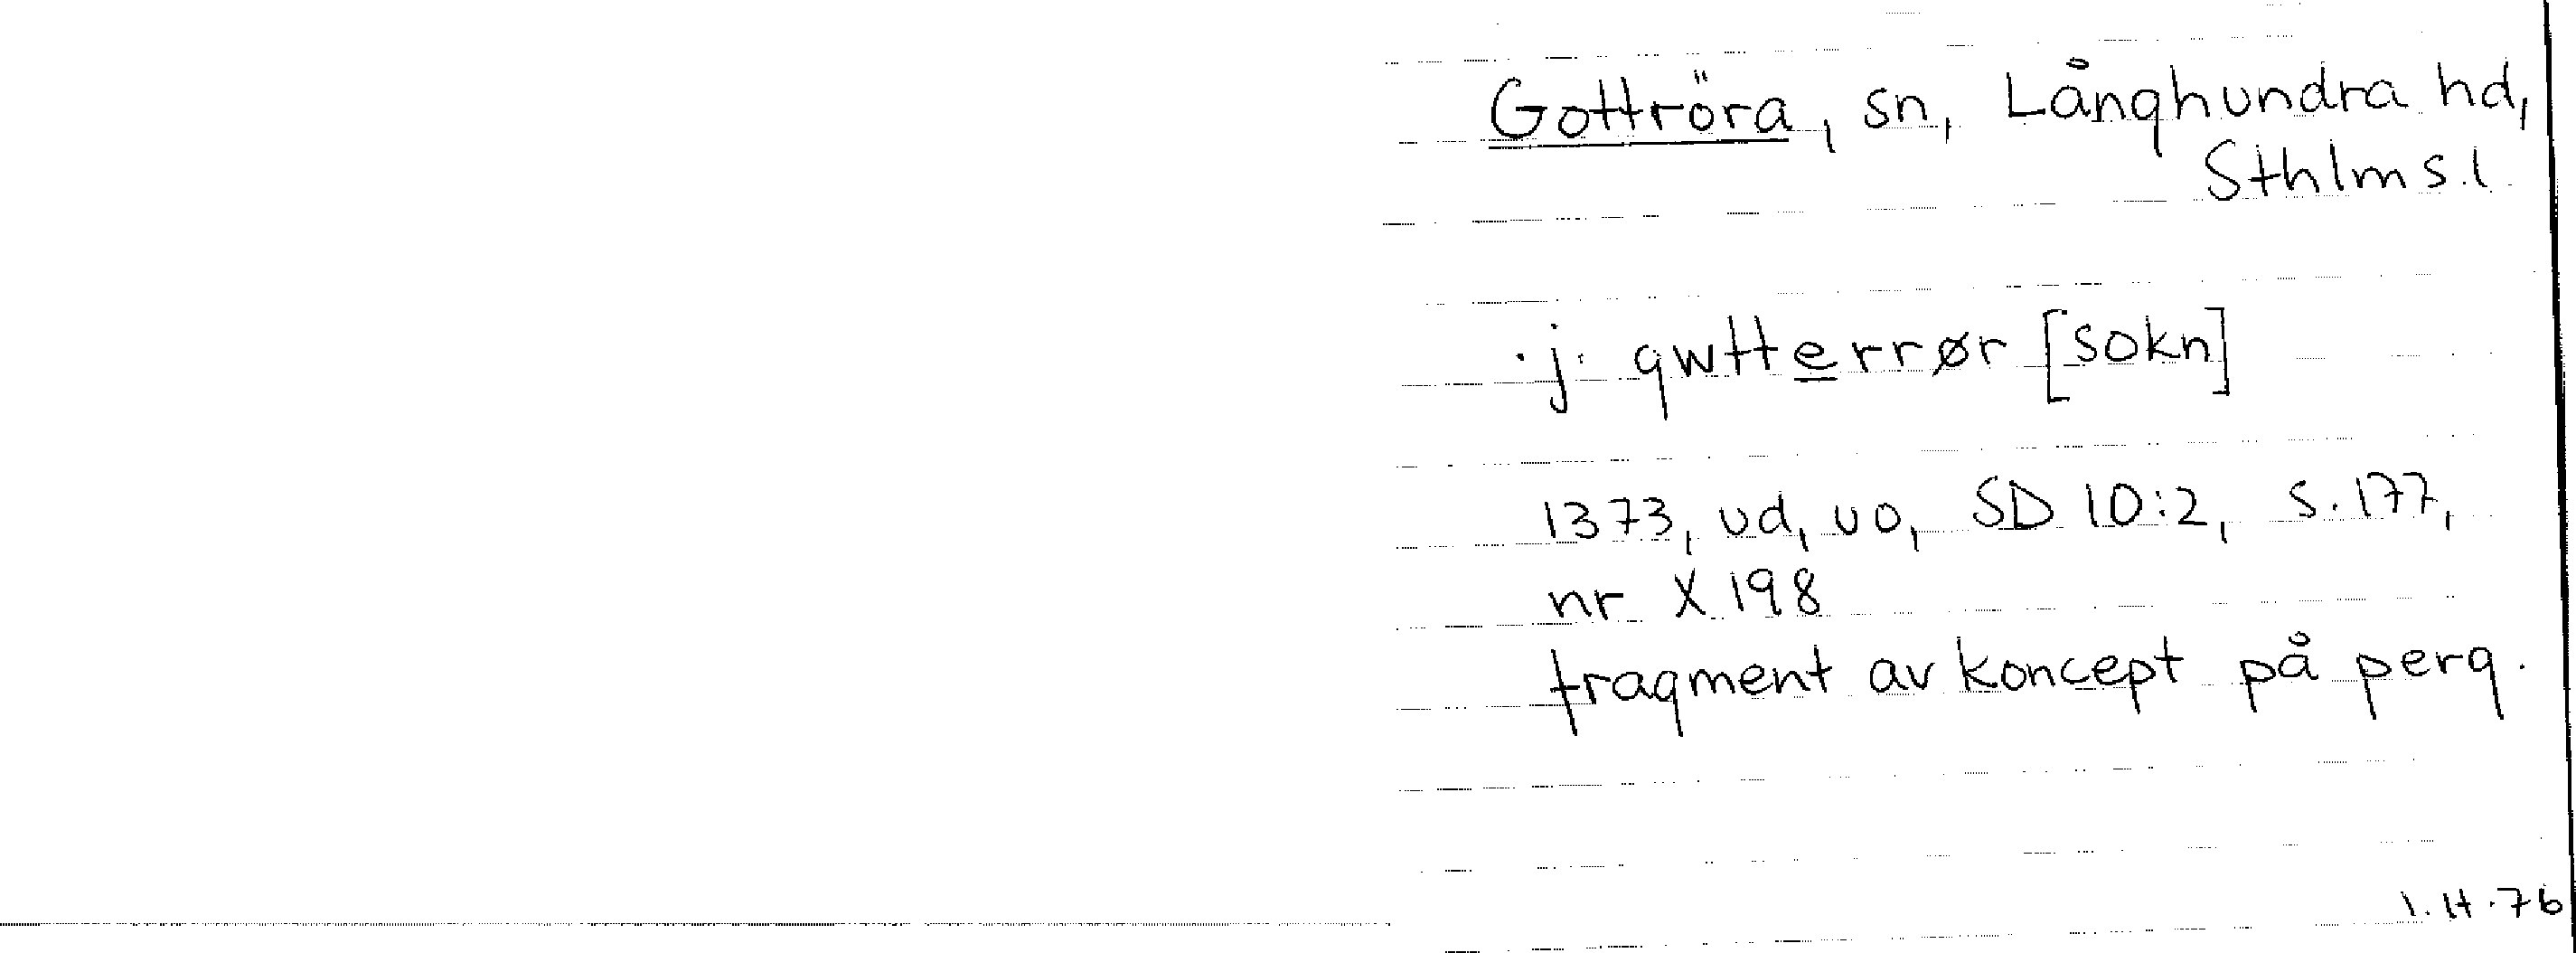 Gottröra, sn, Långhundra hd,
Sthlms.l
·j· gwtterrør [sokn]
1373, ud, uo, SD 10:2, s. 177,
nr X 198
fragment av koncept på perg.
1.4.76